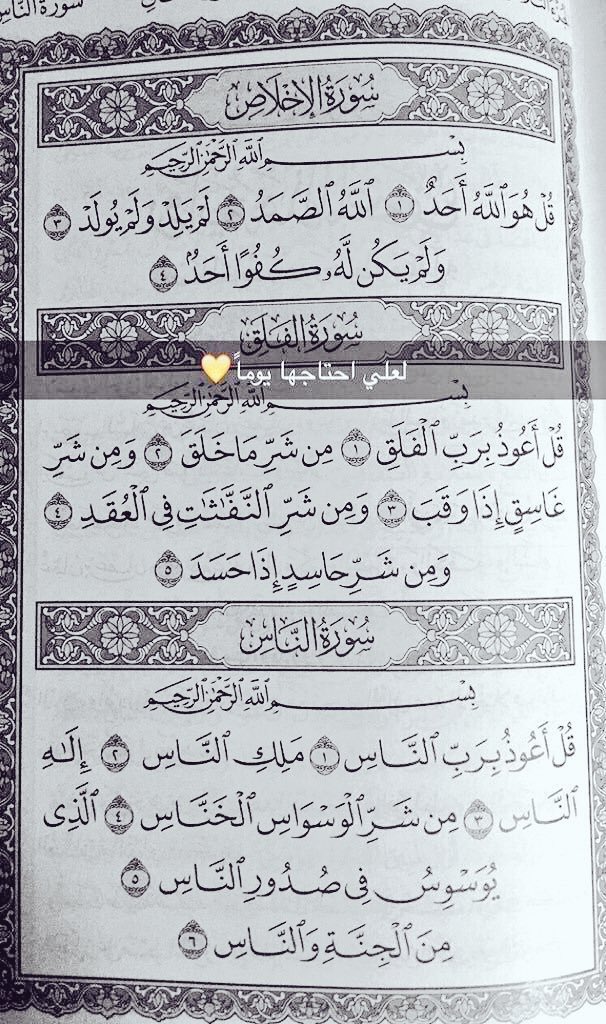 سُورَةُ النَّاسِ
سُورَةُ الإِخْلَاصِ
بِسْمِ ٱللَّهِ ٱلرَّحْمَٰنِ ٱلرَّحِيمِ
قُلْ هُوَ ٱللَّهُ أَحَدٌ ١ ٱللَّهُ ٱلصَّمَدُ ٢ لَمْ يَلِدْ وَلَمْ يُولَدْ ٣
وَلَمْ يَكُن لَّهُۥ كُفُوًا أَحَدٌۢ ٤
سُورَةُ الفَلَقِ
لعلي احتاجها يوماً💛
بِسْمِ ٱللَّهِ ٱلرَّحْمَٰنِ ٱلرَّحِيمِ
قُلْ أَعُوذُ بِرَبِّ ٱلْفَلَقِ ١ مِن شَرِّ مَا خَلَقَ ٢ وَمِن شَرِّ
غَاسِقٍ إِذَا وَقَبَ ٣ وَمِن شَرِّ ٱلنَّفَّٰثَٰتِ فِى ٱلْعُقَدِ ٤
وَمِن شَرِّ حَاسِدٍ إِذَا حَسَدَ ٥
سُورَةُ النَّاسِ
بِسْمِ ٱللَّهِ ٱلرَّحْمَٰنِ ٱلرَّحِيمِ
قُلْ أَعُوذُ بِرَبِّ ٱلنَّاسِ ١ مَلِكِ ٱلنَّاسِ ٢ إِلَٰهِ
ٱلنَّاسِ ٣ مِن شَرِّ ٱلْوَسْوَاسِ ٱلْخَنَّاسِ ٤ ٱلَّذِى
يُوَسْوِسُ فِى صُدُورِ ٱلنَّاسِ ٥
مِنَ ٱلْجِنَّةِ وَٱلنَّاسِ ٦